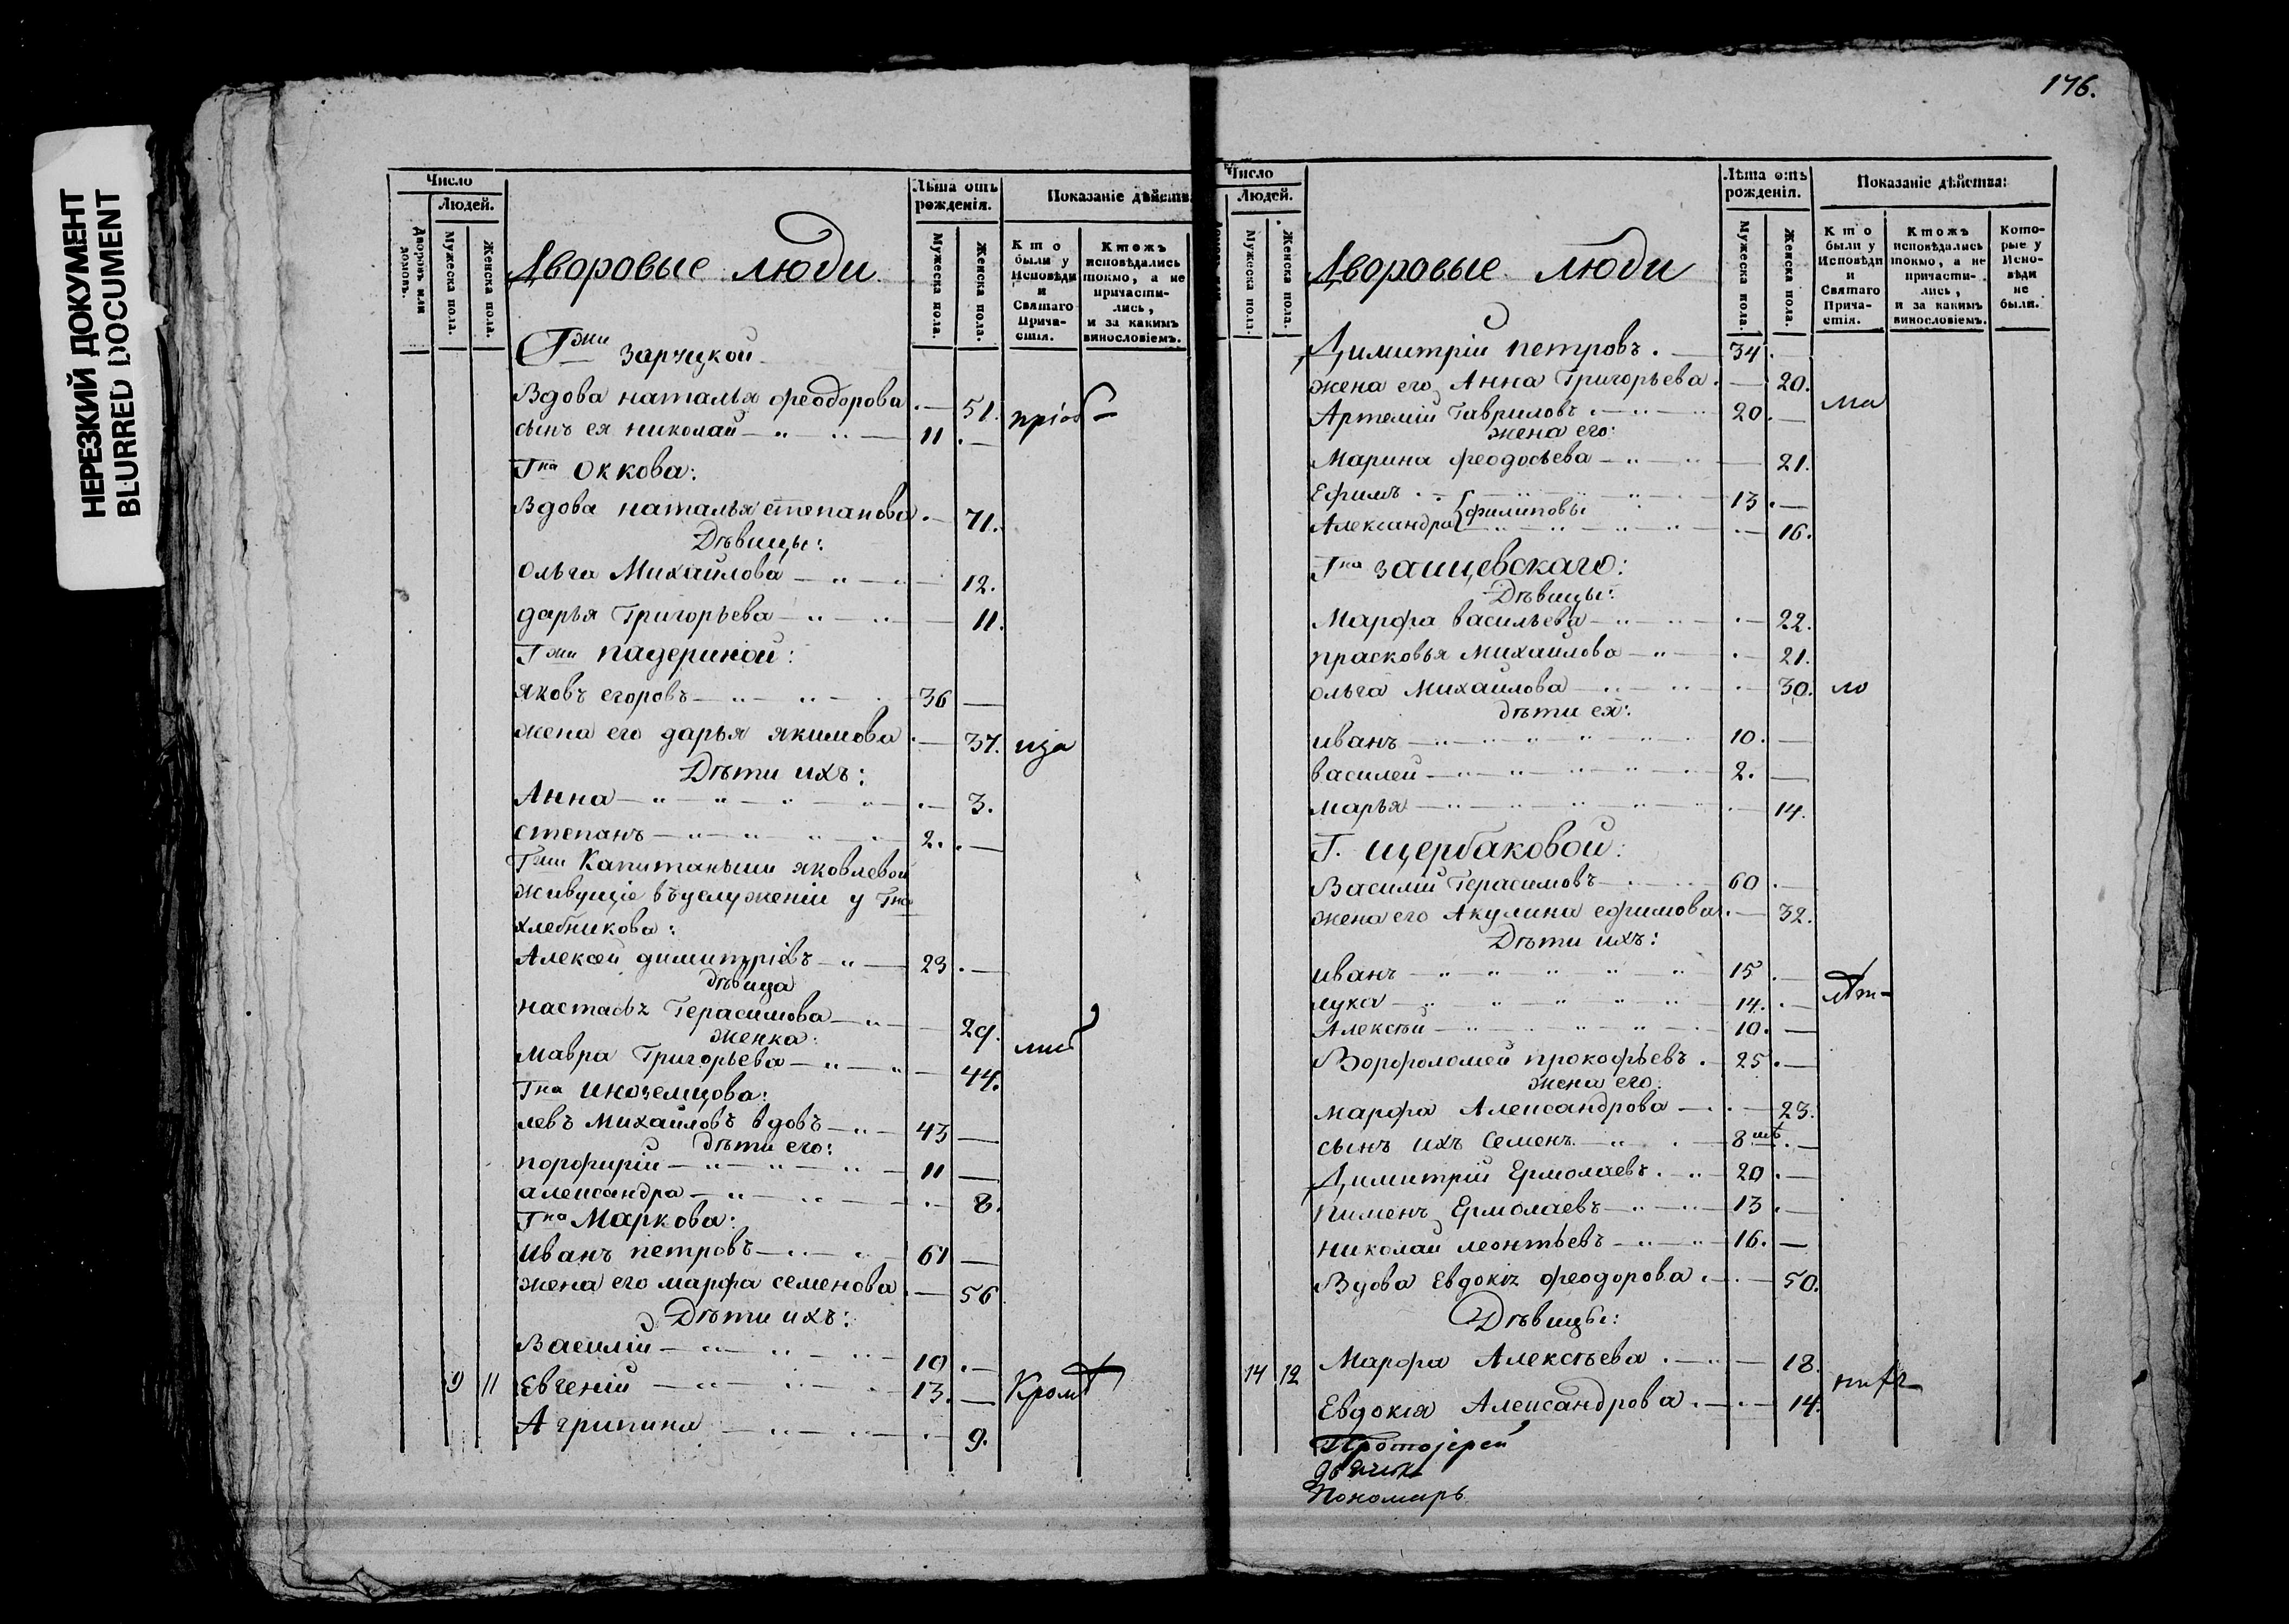 НЕРЕЗКИЙ ДОКУМЕНТ
BLURRED DOCUMENT
Число
Людей.
Дворовъ или домовъ.
Мужеска пола.
Женска пола.
Лѣта отъ рожденія.
Мужеска пола.
Женска пола.
Показаніе дѣйства
Кто были у Исповѣди и Святаго Прича-стія.
Ктожъ исповѣдались токмо, а не причасти-лись, и за какимъ винословіемъ.
Дворовые люди
Гжи Заруцкой
Вдова наталья феодорова .— 51. пріоб-
сынъ ея николай 11 .—
Гна Оккова:
Вдова наталья степанова .— 71.
Дѣвицы:
Ольга Михайлова 12.
дарья Григорьева 11.
Гжи падериной:
яковъ егоровъ 36 —
жена его дарья якимова .— 37. ща
Дѣти ихъ:
Анна .— 3.
степанъ 2. .—
Гжи Капитанши яковлевой
живущіе въ услуженіи у Гна
хлебникова:
Алексей димитріевъ 23 .—
дѣвица
настасья Герасимова 29.
женка:
мавра Григорьева 44.
Гна иноземцова:
левъ михайловъ вдовъ 43 —
дѣти его:
порфирій 11 —
александра .— 8.
Гна Маркова:
Иванъ петровъ 61 —
жена его марфа семенова .— 56
Дѣти ихъ:
Василій 19 .—
9 11 Евгеній 13. — Кромѣ
Агрипина .— 9.
176.
Число
Людей.
Мужеска пола.
Женска пола.
Лѣта отъ рожденія.
Мужеска пола.
Женска пола.
Показаніе дѣйства:
Кто были у Исповѣди и Святаго Прича-стія.
Ктожъ исповѣдались токмо, а не причасти-лись, и за какимъ винословіемъ.
Кото-рые у Испо-вѣди не были.
Дворовые люди
Димитрій петровъ 34 .—
жена его Анна Григорьева .— 20.
Артемій Гавриловъ 20 .— ма
жена его:
Марина феодосьева 21.
Ефимъ 13 .—
филиповы
Александра .— 16.
Гна зашцевскаго:
Дѣвицы:
Марфа васильева .— 22.
прасковья михайлова .— 21.
ольга михайлова .— 30. ло
дѣти ея:
иванъ 10. —
василей 2. —
марья .— 14.
Г. щербаковой:
Василій Герасимовъ 60 .—
жена его Акулина ефимова .— 32.
Дѣти ихъ:
иванъ 15 .—
лука 14. .— лѣт-
Алексѣй 10. —
Ворфоломей прокофьевъ 25 .—
жена его:
марфа Александрова .— 23.
сынъ ихъ Семенъ 8 .—
Димитрій Ермолаевъ 20 .—
пименъ Ермолаевъ 13 .—
николай леонтьевъ 16. —
Вдова Евдокія феодорова .— 50.
Дѣвицы:
14 12 Марфа Алексѣева .— 18.
Евдокія Александрова .— 14.
Протоіерей
Пономарь